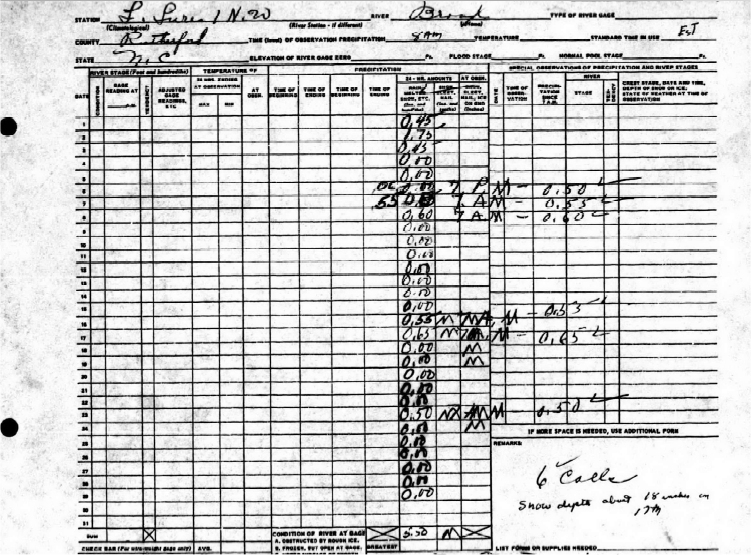 STATION L. Lure 1 N.20 RIVER Broad TYPE OF RIVER GAGE
(Climatological) (River Station - if different)
COUNTY Rutherford TIME (local) OF OBSERVATION PRECIPITATION 8 AM TEMPERATURE STANDARD TIME IN USE EST
STATE N.C ELEVATION OF RIVER GAGE ZERO Ft. FLOOD STAGE Ft. NORMAL POOL STAGE Ft.
RIVER STAGE (Feet and hundredths) TEMPERATURE OF PRECIPITATION SPECIAL OBSERVATIONS OF PRECIPITATION AND RIVER STAGES
24 HRS. ENDING AT OBSERVATION 24 - HR. AMOUNTS AT OBSN. RIVER
DATE CONDITION GAGE READING AT TENDENCY ADJUSTED GAGE READINGS, ETC MAX MIN AT OBSN. TIME OF BEGINNING TIME OF ENDING TIME OF BEGINNING TIME OF ENDING DATE TIME OF OBSERVATION PRECIPITATION SINCE 7 A.M. STAGE TENDENCY CREST STAGE, DATE AND TIME, DEPTH OF SNOW OR ICE, STATE OF WEATHER AT TIME OF OBSERVATION
1 0.45
2 1.75
3 0.45
4 0.00
5 0.00
6 7 P.M - 0.50
7 .55 7 A M - 0.55
8 0.60 7 A.M - 0.60
9 0.00
10 0.00
11 0.00
12 0.00
13 0.00
14 0.00
15 0.00
16 0.55 M M - 0.55
17 0.65 M M - 0.65
18 0.00 M
19 0.00 M
20 0.00
21 0.00
22 0.00
23 0.50 AM M - 0.50
24 0.00 M
25 0.00
26 0.00
27 0.00
28 0.00
29 0.00
30
31
IF MORE SPACE IS NEEDED, USE ADDITIONAL FORM
REMARKS
6 Calls
Snow depth about 18 inches on
17th
SUM CONDITION OF RIVER AT GAGE 5.50 M
A. OBSTRUCTED BY ROUGH ICE.
CHECK BAR (For wire-weight gage only) AVG. B. FROZEN, BUT OPEN AT GAGE. GREATEST LIST FORMS OR SUPPLIES NEEDED